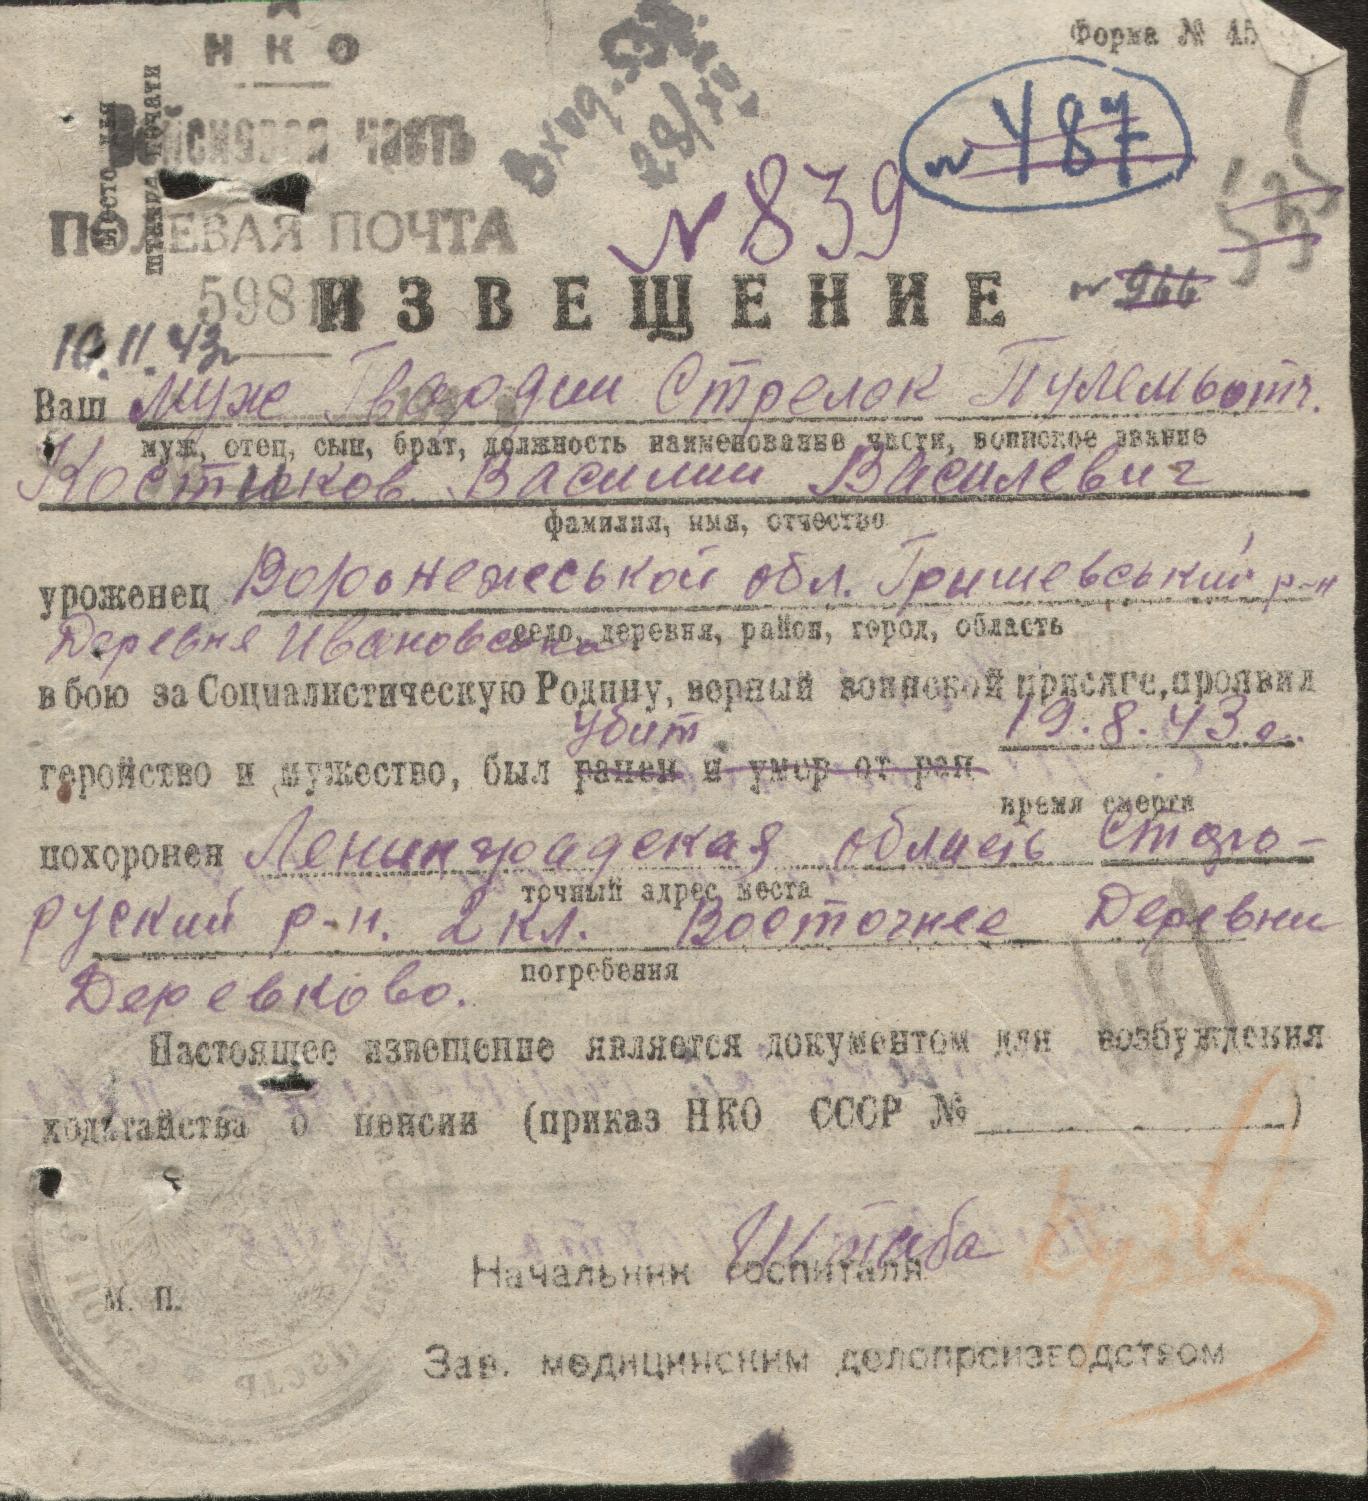 НКО
Форма № 45
Войсковая часть
Вход. 
28/XII
место для
штампа печати
№ 487
ПОЛЕВАЯ ПОЧТА
№ 839
5981
ИЗВЕЩЕНИЕ
№ 966
10.11.43г
Ваш муж Гвардии Стрелок Пулемьотч.
муж, отец, сын, брат, должность наименование части, воинское звание
Костюков Василии Василевич
фамилия, имя, отчество
уроженец Воронежеськой обл. Гришевський р-н
село, деревня, район, город, область
Деревня Ивановська
в бою за Социалистическую Родину, верный воинской присяге, проявил
убит 19.8.43г.
геройство и мужество, был ранен и умер от ран
время смерти
похоронен Ленинградская область Старо-
точный адрес места
руский р-н. 2 кл. Восточнее Деревни
погребения
Деревково.
Настоящее извещение является документом для возбуждения
ходатайства о пенсии (приказ НКО СССР № )
Штаба
Начальник госпиталя
М. П.
Зав. медицинским делопроизводством